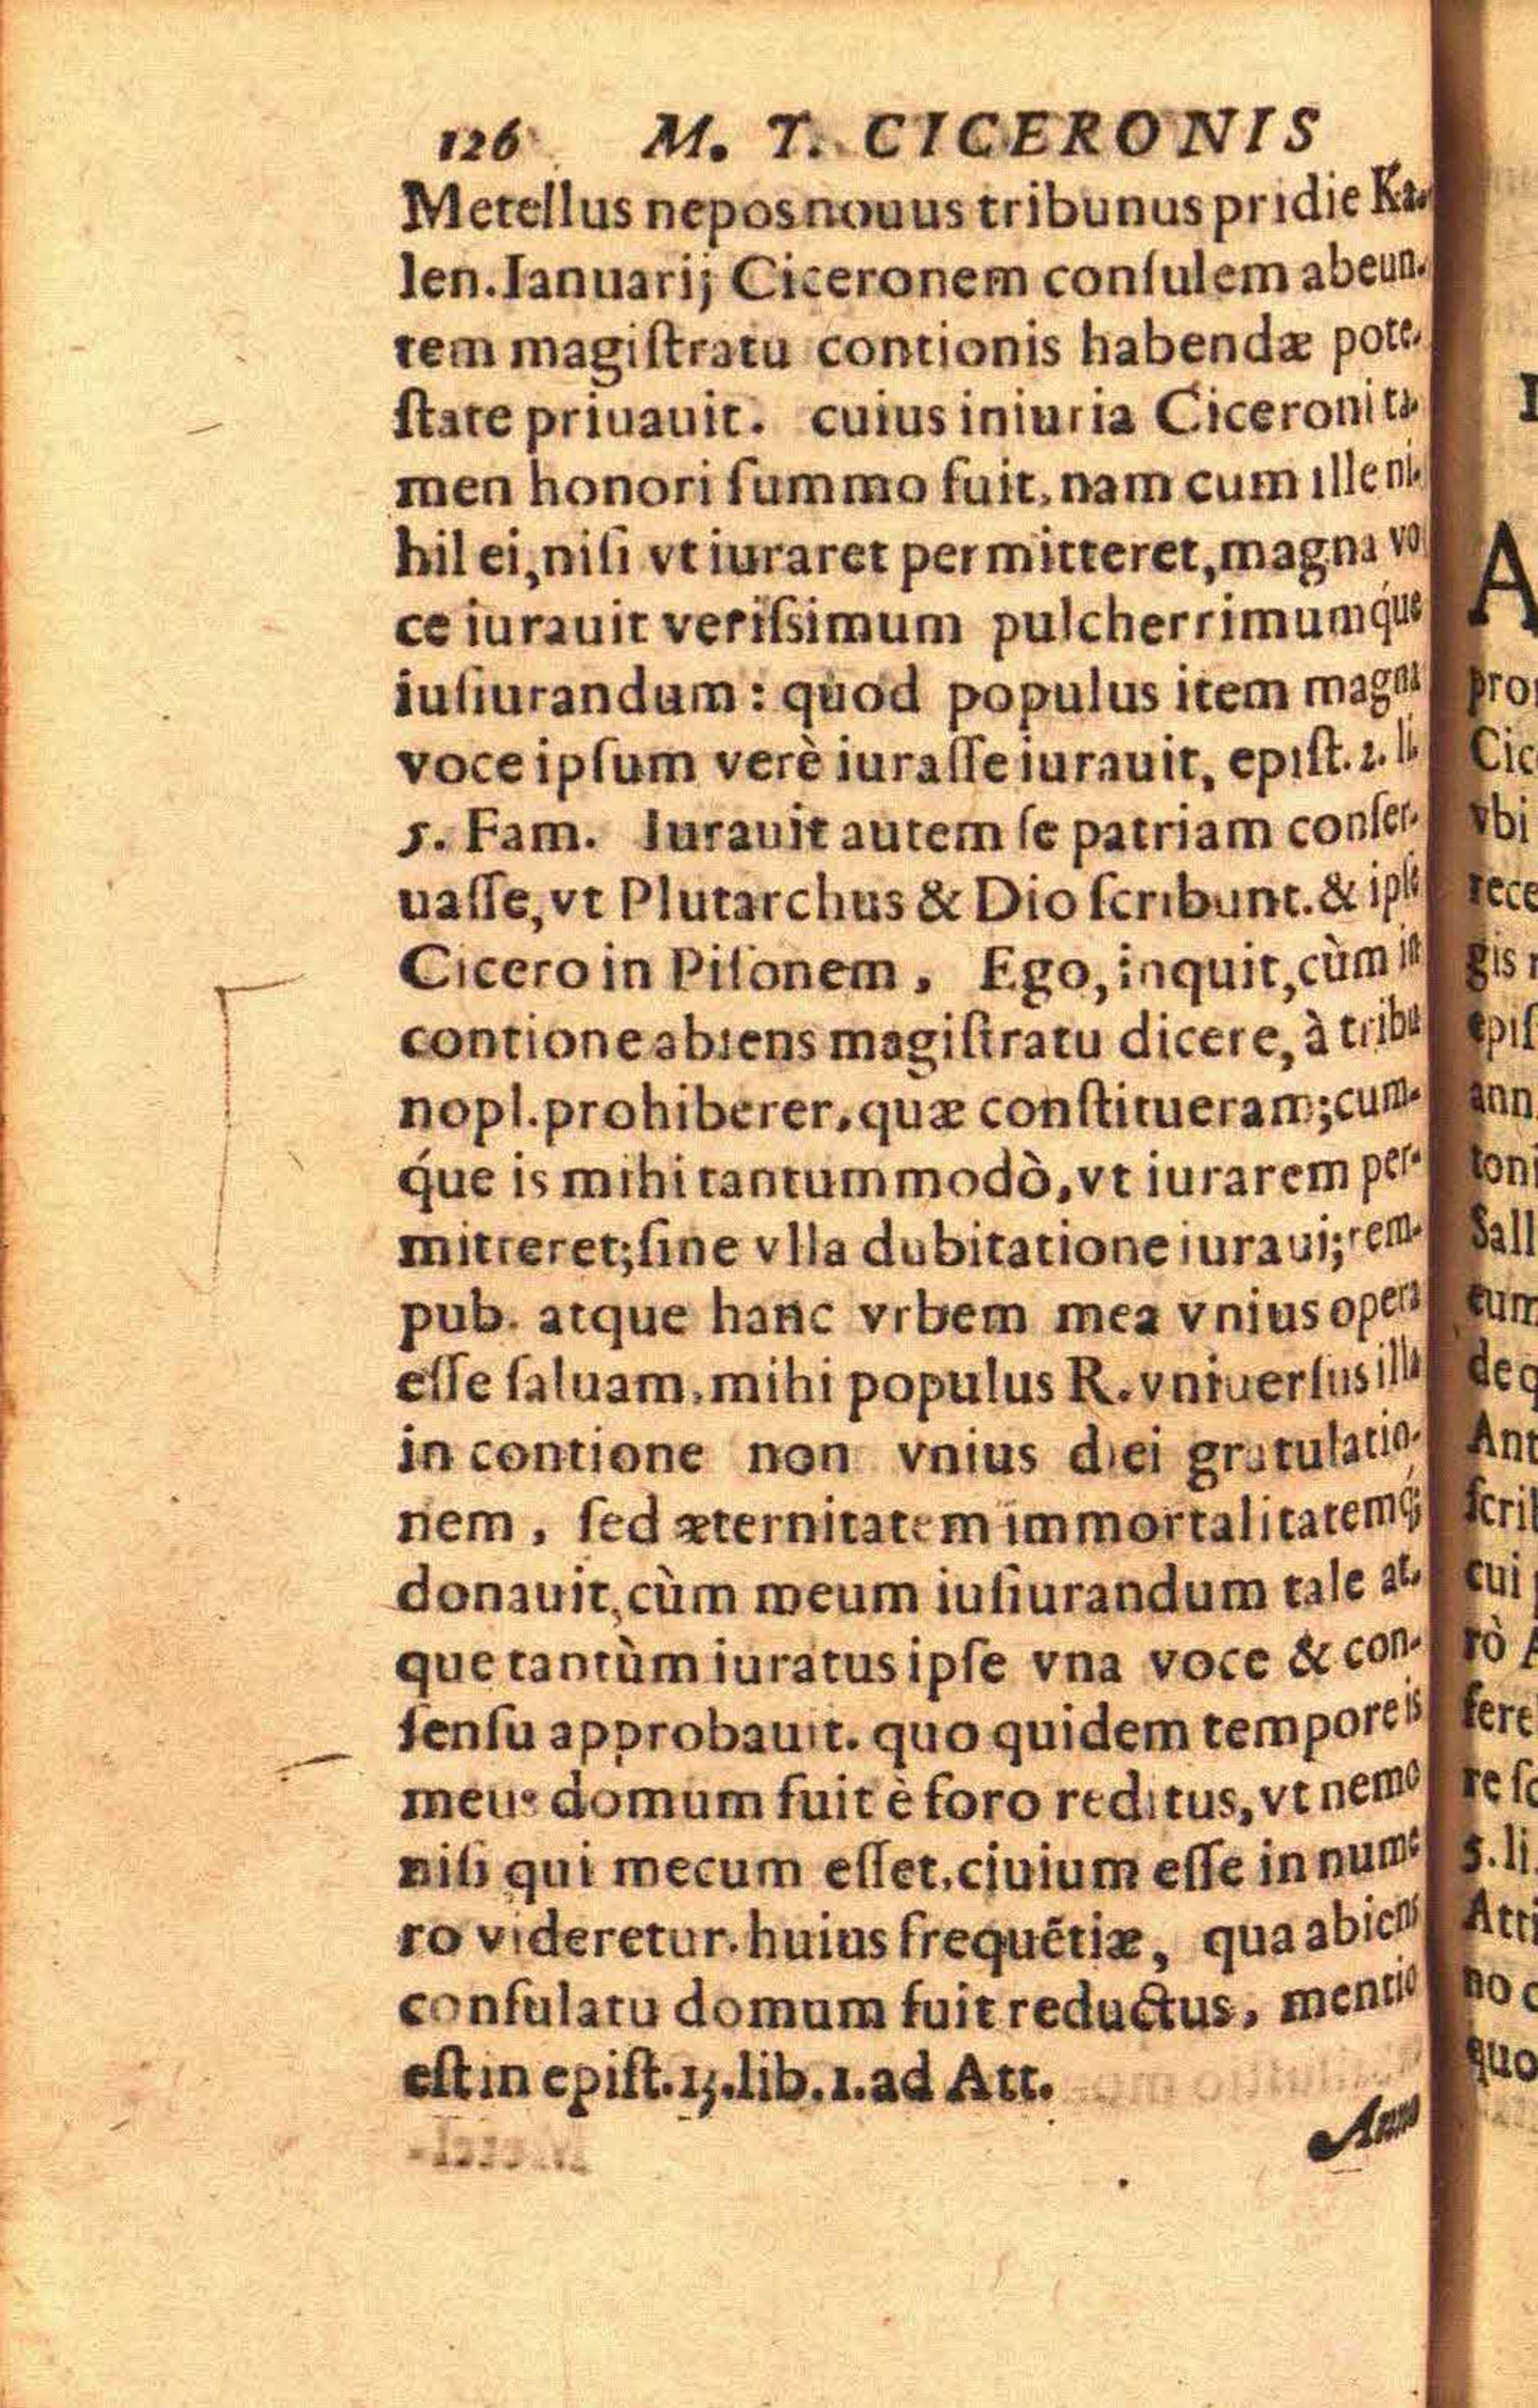 126 M. T. CICERONIS
Metellus nepos nouus tribunus pridie Ka-
len. Ianuarij Ciceronem conſulem abeun-
tem magiſtratu contionis habendæ pote-
ſtate priuauit. cuius iniuria Ciceroni ta-
men honori ſummo fuit, nam cum ille ni-
hil ei, niſi vt iuraret permitteret, magna vo
ce iurauit veriſsimum pulcherrimumq́ue
iuſiurandum: quod populus item magna
voce ipſum verè iuraſſe iurauit, epiſt. 2. li.
5. Fam. Iurauit autem ſe patriam conſer-
uaſſe, vt Plutarchus & Dio ſcribunt. & ipſe
Cicero in Piſonem. Ego, inquit, cùm in
contione abiens magiſtratu dicere, à tribu
no pl. prohiberer, quæ conſtitueram; cum-
q́ue is mihi tantummodò, vt iurarem per-
mitteret; ſine vlla dubitatione iuraui; rem-
pub. atque hanc vrbem mea vnius opera
eſſe ſaluam. mihi populus R. vniuerſus illa
in contione non vnius diei gratulatio-
nem, ſed æternitatem immortalitatemq;
donauit, cùm meum iuſiurandum tale at-
que tantùm iuratus ipſe vna voce & con-
ſenſu approbauit. quo quidem tempore is
meus domum fuit è foro reditus, vt nemo
niſi qui mecum eſſet, ciuium eſſe in nume
ro videretur. huius frequẽtiæ, qua abiens
conſulatu domum fuit reductus, mentio
eſt in epiſt. 13. lib. 1. ad Att.
Anno
A
pro
Cic
vbi
rece
gis
epiſ
ann
toni
Sall
cum
de q
Ant
ſcri
cui
rò
fere
re ſc
5. li
Atti
no c
quo